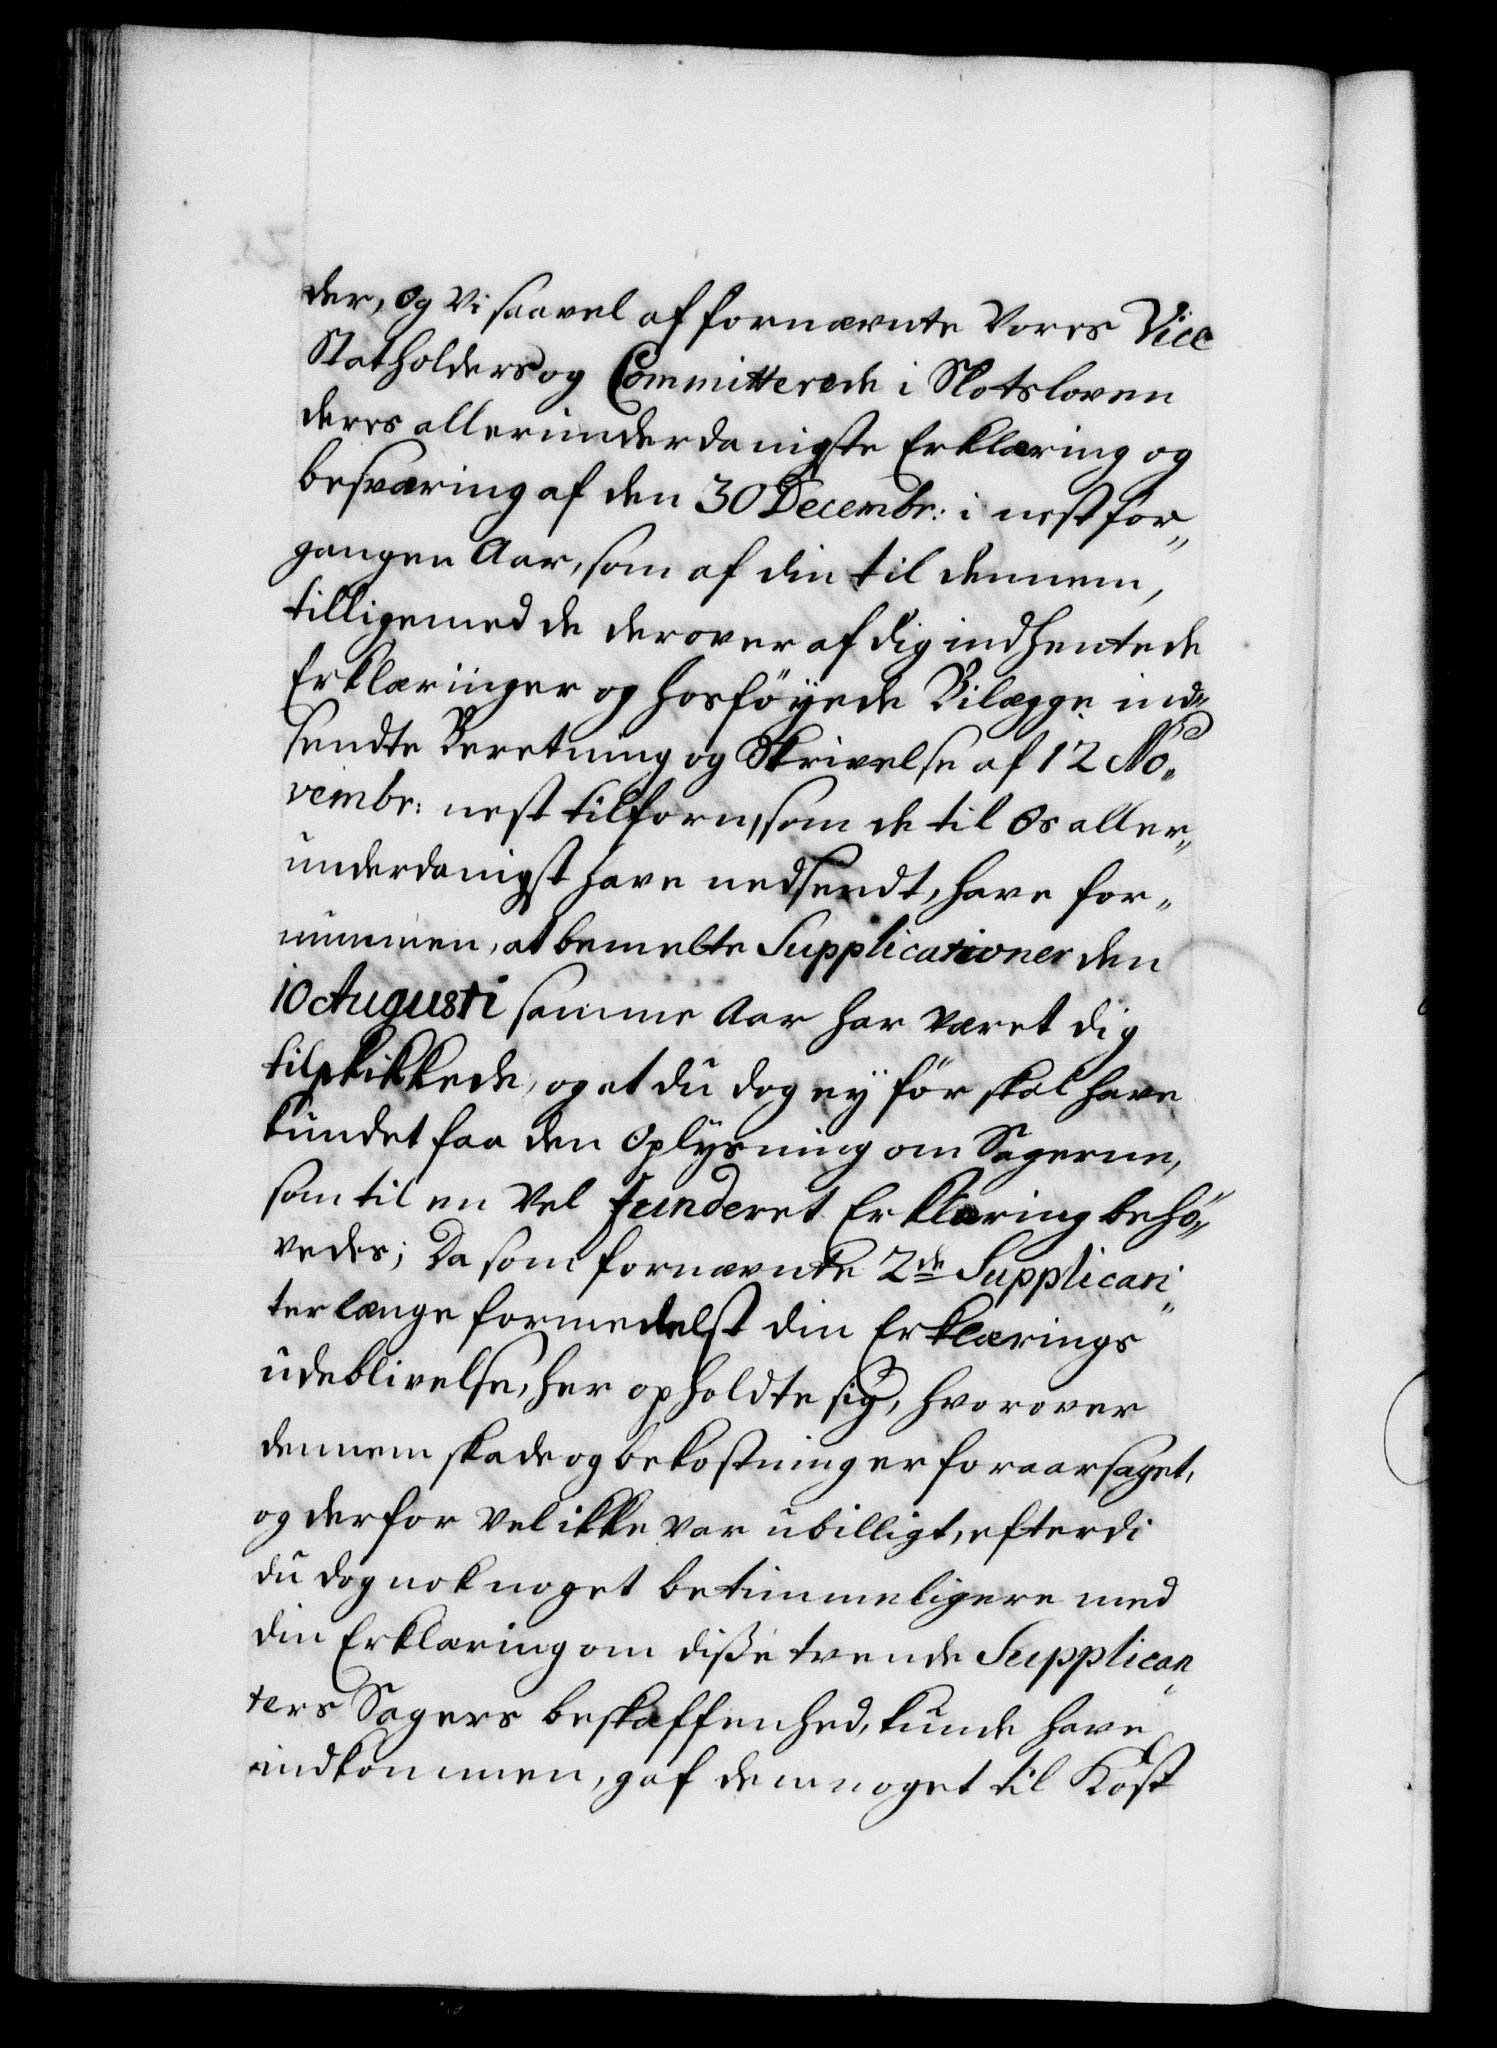 der, og Vi saavel af fornævnte Vores Vice
Statholders og Committerede i Slotsloven
deres allerunderdanigste Erklæring og
besværing af den 30 Decembr: i nest for„
gangen Aar, som af din til dennem,
tilligemed de derover af dig indhentede
Erklæringer og hosföyede Bilægge ind„
sendte Beretning og Skrivelse af 12 No„
vembr: nest tilforn, som de til Os aller„
underdanigst have nedsendt, have for„
nummen, at bemelte Supplicationer den
10 Augusti samme Aar har været dig
tilskikkede, og at du dog ey för skal have
kundet faa den Oplysning om Sagerne,
som til en Vel funderet Erklæring behö„
vedes; Da som fornævnte 2de Supplican„
ter længe formedelst din Erklærings
udeblivelse, her opholdte sig, hvorover
dennem skade og bekostninger foraarsaget,
og derfor vel ikke var ubilligt, efterdi
du dog nok noget betimmeligere med
din Erklæring om disse tvende Supplican„
ters Sagers beskaffenhed, kunde have
indkommen, gaf dem noget til Kost